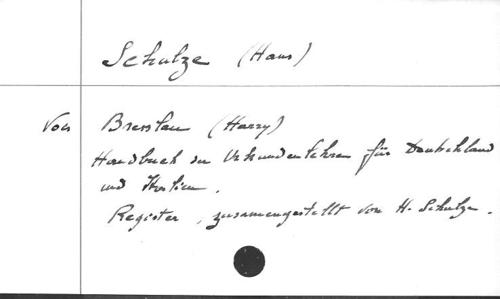 Schulze (Hans)
Von Bresslau (Harry)
Handbuch der Urkundenlehre für Deutschland
und Italien.
Register, zusamengestellt von H. Schulze.